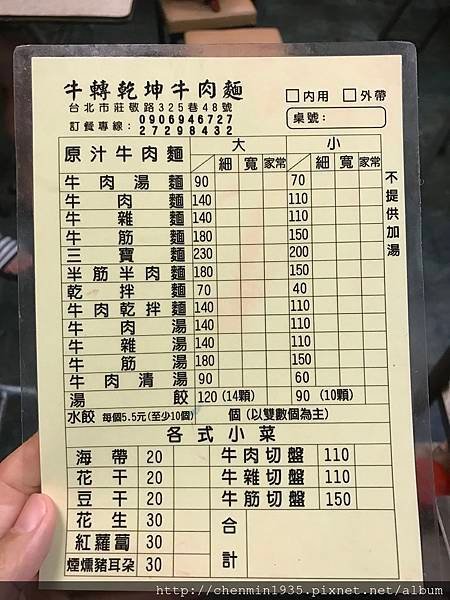 牛轉乾坤牛肉麵
台北市莊敬路325巷48號
訂餐專線：0906946727
27298432
□內用 □外帶
桌號：
原汁牛肉麵 大 小
細 寬 家常 細 寬 家常
牛肉湯麵 90 70
牛肉麵 140 110
牛雜麵 140 110
牛筋麵 180 150
三寶麵 230 200
半筋半肉麵 180 150
乾拌麵 70 40
牛肉乾拌麵 140 110
牛肉湯 140 110
牛雜湯 140 110
牛筋湯 180 150
牛肉清湯 90 60
湯餃 120（14顆） 90（10顆）
水餃 每個5.5元(至少10個) 個（以雙數個為主）
不提供加湯
各式小菜
海帶 20 牛肉切盤 110
花干 20 牛雜切盤 110
豆干 20 牛筋切盤 150
花生 30 合計
紅蘿蔔 30
煙燻豬耳朶 30
http://chenmin1935.pixnet.net/album